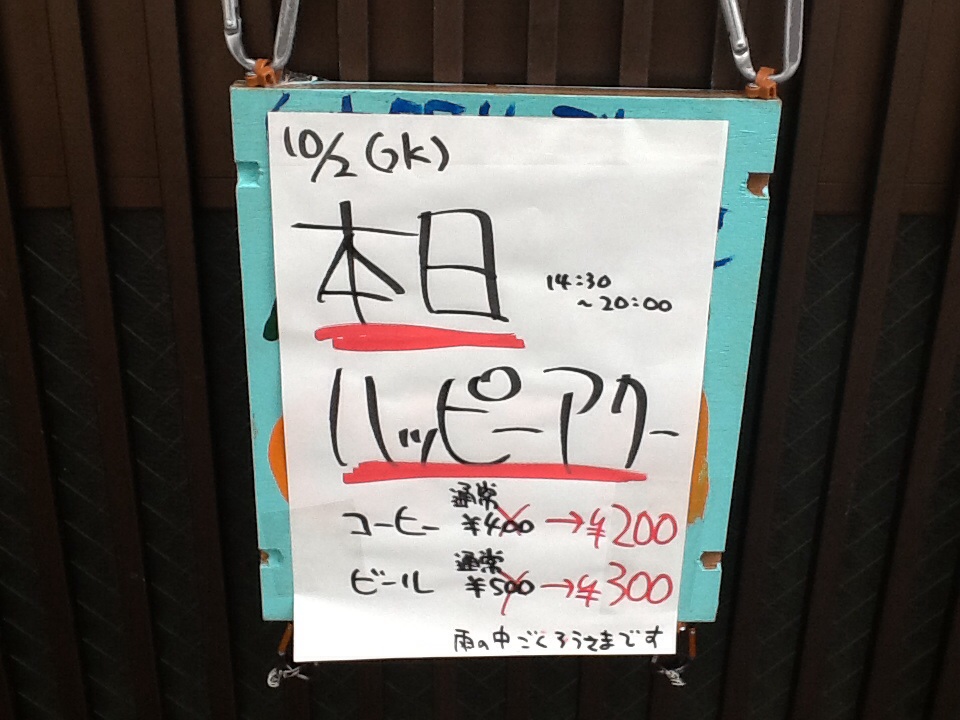 10/2 (水)
本日
14:30
~20:00
ハッピーアワー
通常
コーヒー ¥400 → ¥200
通常
ビール ¥500 → ¥300
雨の中ごくろうさまです